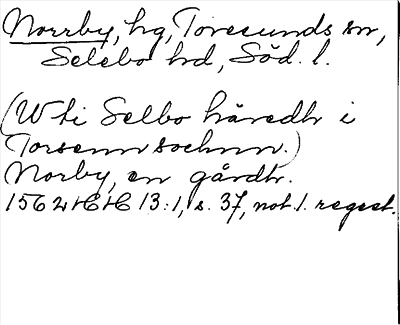 Norrby, hg, Toresunds sn,
Selebo hd, Söd. l.
(W ti Selbo häredh i
Torsenn sochnn.)
Norby, en gårdh.
1562 HH 13:1, s. 37, not. 1. regest.